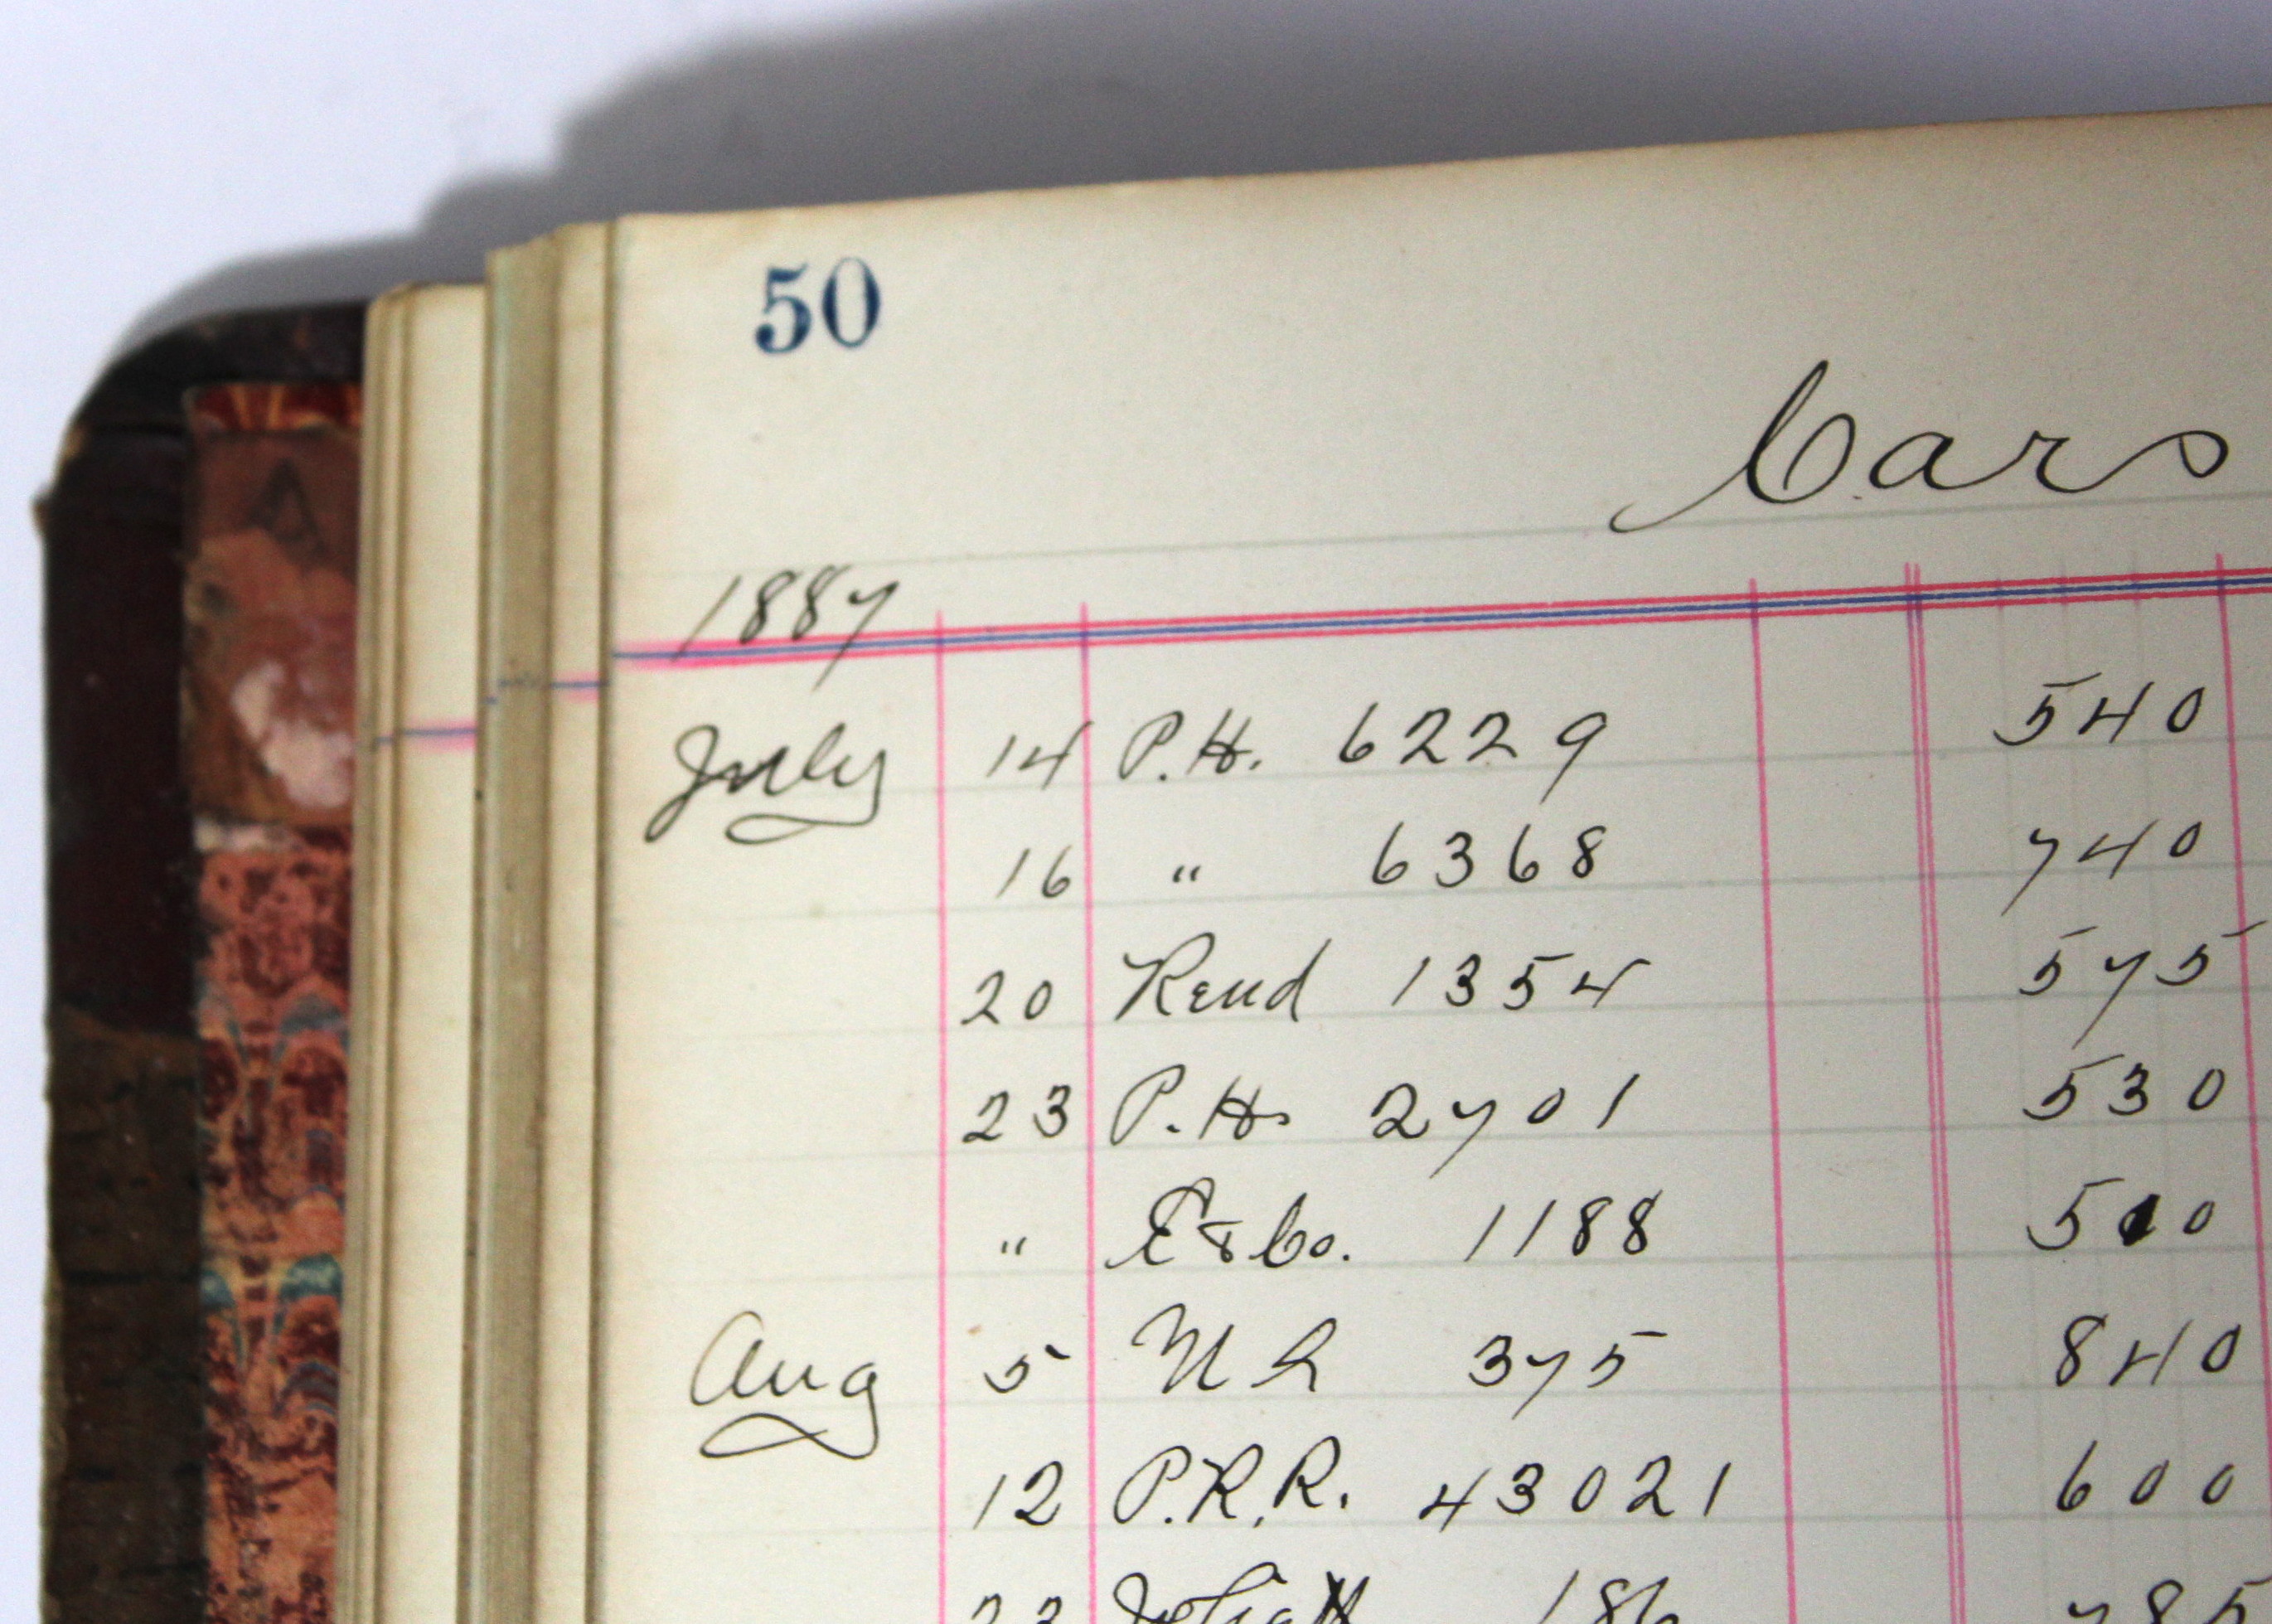 50
Cars
1887
July 14 P.H. 6229 540
16 " 6368 740
20 Rend 1354 575
23 P.H. 2701 530
" E & Co. 1188 510
Aug 5 375 840
12 P.R.R. 43021 600
186 785